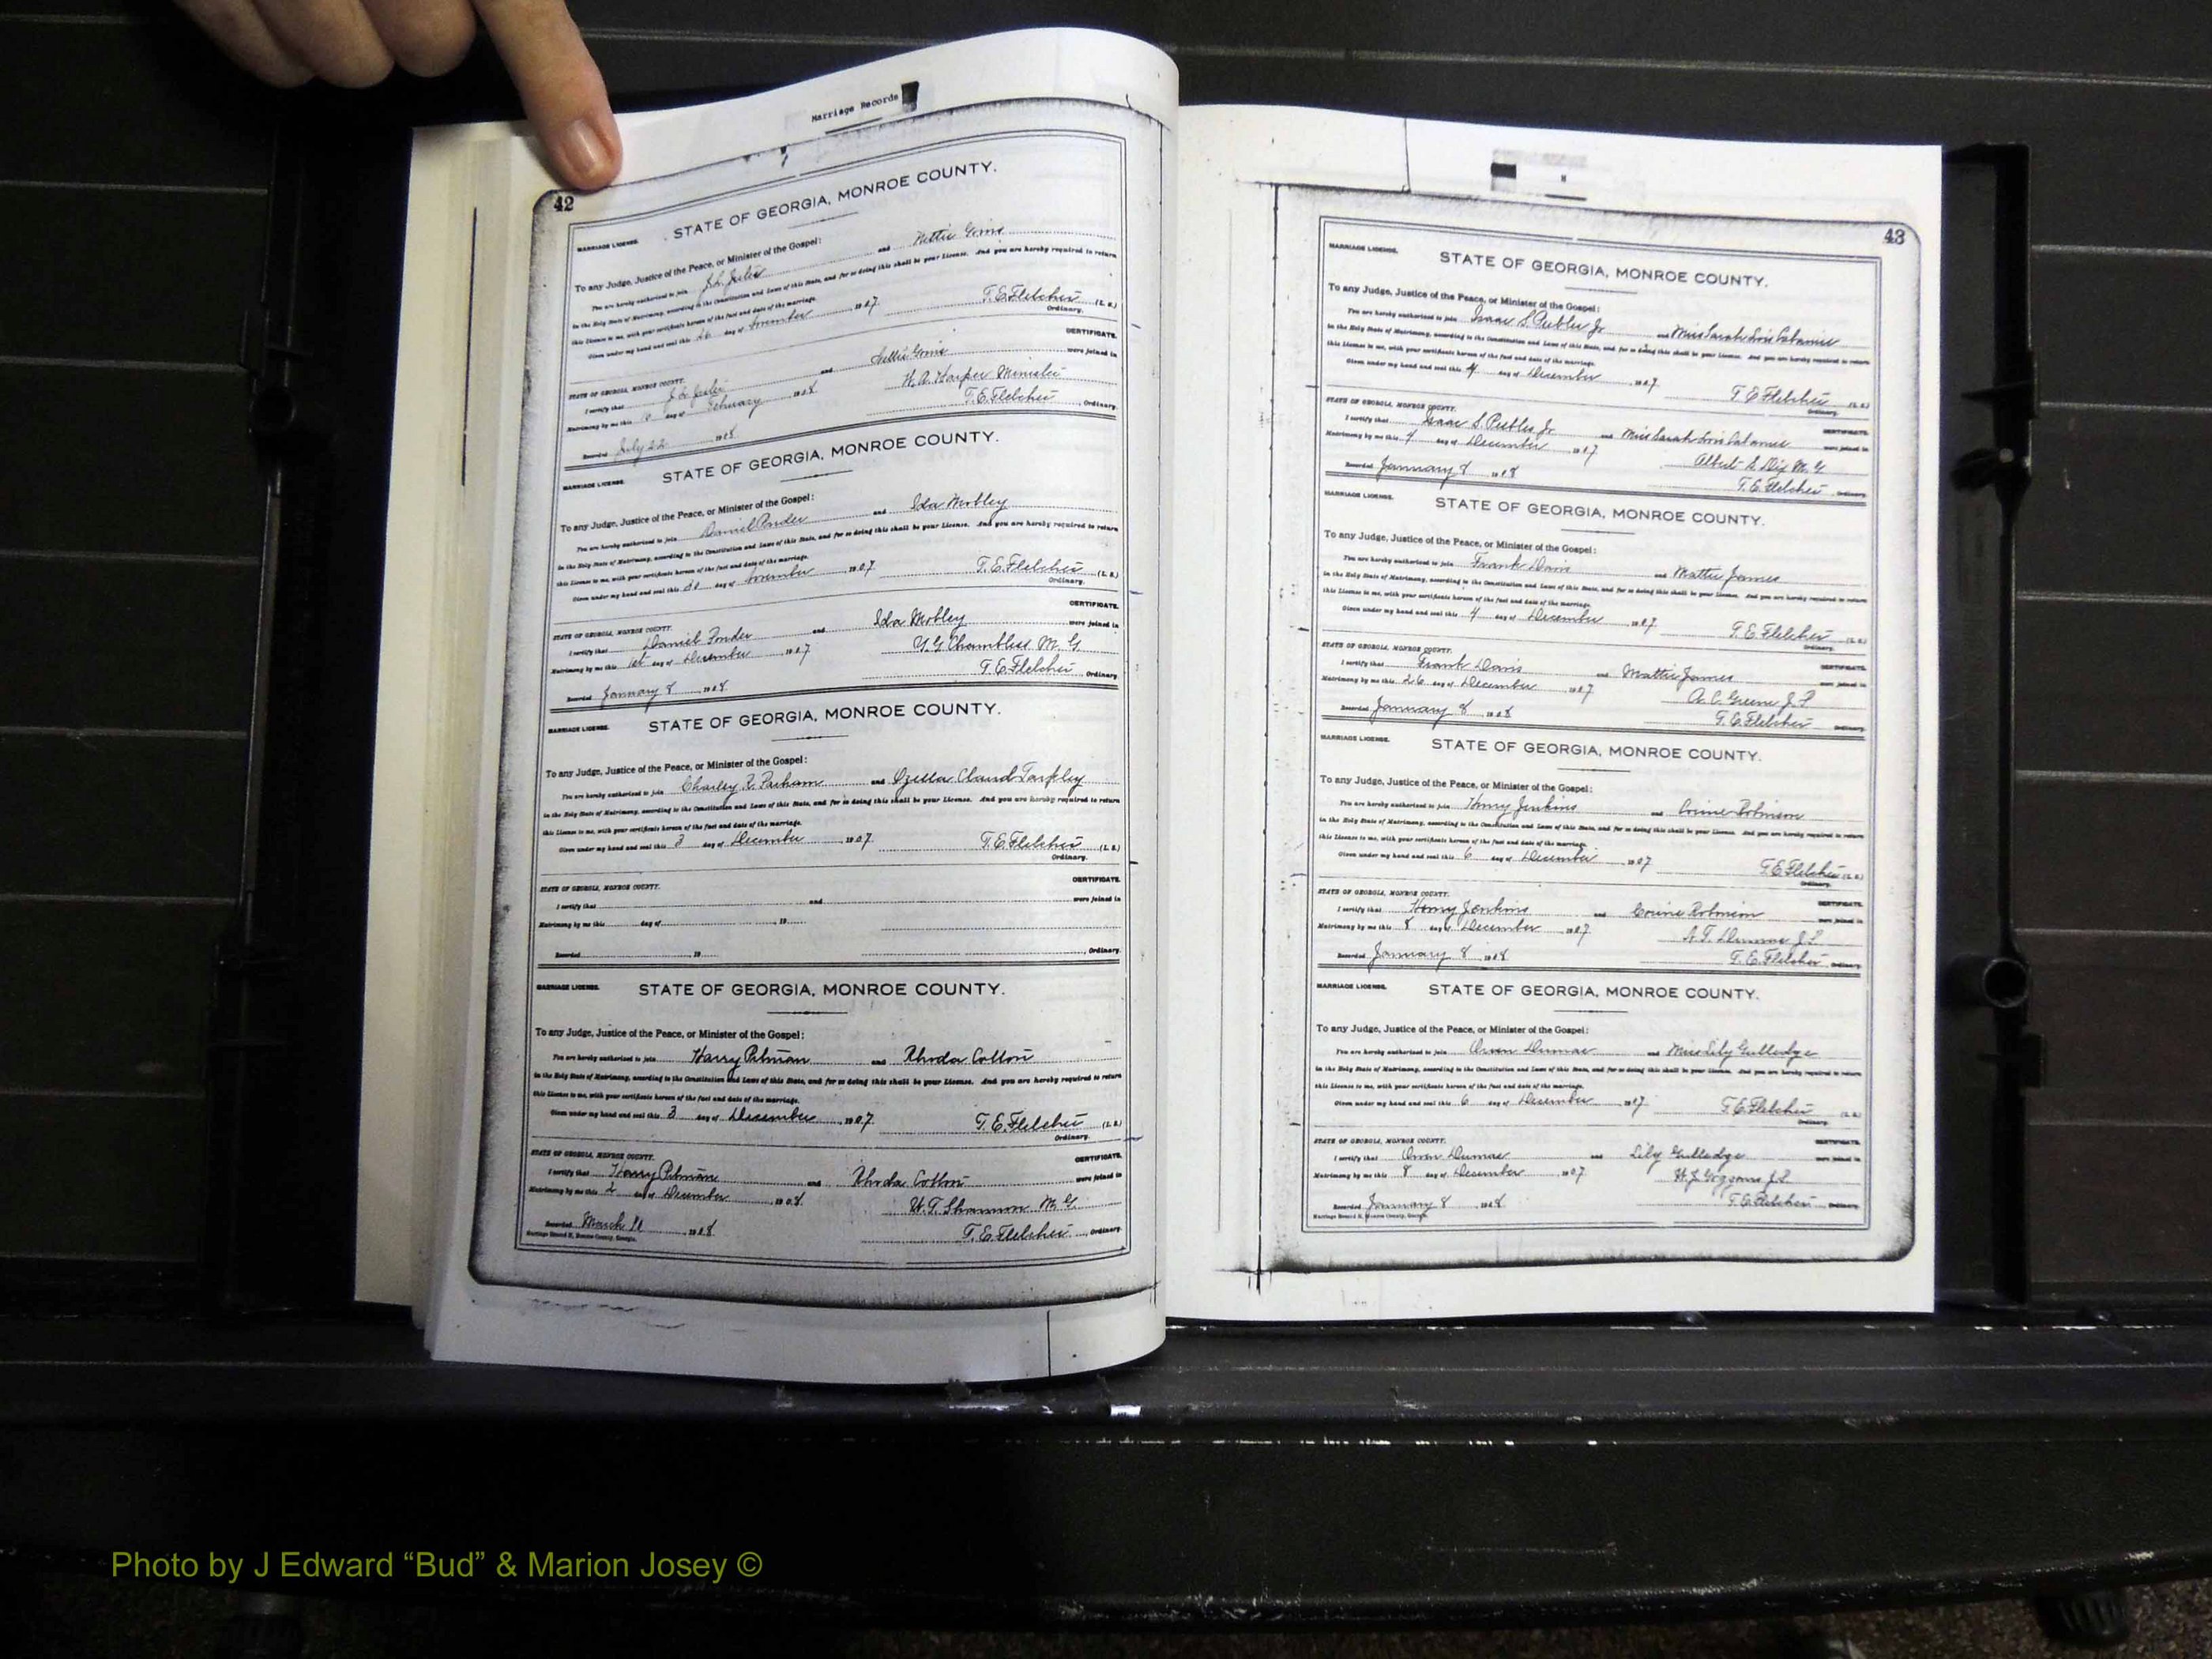 Marriage Records
42
STATE OF GEORGIA, MONROE COUNTY.
MARRIAGE LICENSE.
To any Judge, Justice of the Peace, or Minister of the Gospel:
You are hereby authorized to join and
in the Holy State of Matrimony, according to the Constitution and Laws of this State, and for so doing this shall be your License. And you are hereby required to return
this License to me, with your certificate hereon of the fact and date of the marriage.
Given under my hand and seal this 26 day of November 1907
T. E. Fletcher (L. S.)
Ordinary.
CERTIFICATE.
STATE OF GEORGIA, MONROE COUNTY.
I certify that and were joined in
Matrimony by me this day of February 1908 W. A. Harper Minister
Recorded July 22 1908 T. E. Fletcher, Ordinary.
STATE OF GEORGIA, MONROE COUNTY.
MARRIAGE LICENSE.
To any Judge, Justice of the Peace, or Minister of the Gospel:
You are hereby authorized to join Daniel Ponder and Ida Mobley
in the Holy State of Matrimony, according to the Constitution and Laws of this State, and for so doing this shall be your License. And you are hereby required to return
this License to me, with your certificate hereon of the fact and date of the marriage.
Given under my hand and seal this 30 day of November 1907 T. E. Fletcher (L. S.)
Ordinary.
CERTIFICATE.
STATE OF GEORGIA, MONROE COUNTY.
I certify that Daniel Ponder and Ida Mobley were joined in
Matrimony by me this 1st day of December 1907 Chambliss M. G.
Recorded January 8 1908 T. E. Fletcher, Ordinary.
STATE OF GEORGIA, MONROE COUNTY.
MARRIAGE LICENSE.
To any Judge, Justice of the Peace, or Minister of the Gospel:
You are hereby authorized to join Charley R. Parham and Ozella Claud Tarpley
in the Holy State of Matrimony, according to the Constitution and Laws of this State, and for so doing this shall be your License. And you are hereby required to return
this License to me, with your certificate hereon of the fact and date of the marriage.
Given under my hand and seal this 3 day of December, 1907. T. E. Fletcher (L. S.)
Ordinary.
CERTIFICATE.
STATE OF GEORGIA, MONROE COUNTY.
I certify that and were joined in
Matrimony by me this day of 19
Recorded 19 , Ordinary.
MARRIAGE LICENSE. STATE OF GEORGIA, MONROE COUNTY.
To any Judge, Justice of the Peace, or Minister of the Gospel:
You are hereby authorized to join Harry Pitman and Rhoda Cotton
in the Holy State of Matrimony, according to the Constitution and Laws of this State, and for so doing this shall be your License. And you are hereby required to return
this License to me, with your certificate hereon of the fact and date of the marriage.
Given under my hand and seal this 3 day of December, 1907. T. E. Fletcher (L. S.)
Ordinary.
STATE OF GEORGIA, MONROE COUNTY. CERTIFICATE.
I certify that Harry Pitman and Rhoda Cotton were joined in
Matrimony by me this 2 day of December 1908. W. T. Shannon M. G.
Recorded March 1908 T. E. Fletcher, Ordinary.
Marriage Record H, Monroe County, Georgia.
43
MARRIAGE LICENSE. STATE OF GEORGIA, MONROE COUNTY.
To any Judge, Justice of the Peace, or Minister of the Gospel:
You are hereby authorized to join Isaac S. Peebles Jr and Miss Sarah Lois
in the Holy State of Matrimony, according to the Constitution and Laws of this State, and for so doing this shall be your License. And you are hereby required to return
this License to me, with your certificate hereon of the fact and date of the marriage.
Given under my hand and seal this 4 day of December 1907
T. E. Fletcher (L. S.)
Ordinary.
STATE OF GEORGIA, MONROE COUNTY. CERTIFICATE.
I certify that Isaac S. Peebles Jr and Miss Sarah Lois were joined in
Matrimony by me this 4 day of December 1907 Albert S. Dix M. G.
Recorded January 8 1908 T. E. Fletcher Ordinary.
MARRIAGE LICENSE. STATE OF GEORGIA, MONROE COUNTY.
To any Judge, Justice of the Peace, or Minister of the Gospel:
You are hereby authorized to join Frank Davis and Mattie James
in the Holy State of Matrimony, according to the Constitution and Laws of this State, and for so doing this shall be your License. And you are hereby required to return
this License to me, with your certificate hereon of the fact and date of the marriage.
Given under my hand and seal this 4 day of December 1907 T. E. Fletcher (L. S.)
Ordinary.
STATE OF GEORGIA, MONROE COUNTY. CERTIFICATE.
I certify that Frank Davis and Mattie James were joined in
Matrimony by me this 26 day of December 1907 A. C. Greene J. P.
Recorded January 8 1908 T. E. Fletcher Ordinary.
MARRIAGE LICENSE. STATE OF GEORGIA, MONROE COUNTY.
To any Judge, Justice of the Peace, or Minister of the Gospel:
You are hereby authorized to join Henry Jenkins and Corine Robinson
in the Holy State of Matrimony, according to the Constitution and Laws of this State, and for so doing this shall be your License. And you are hereby required to return
this License to me, with your certificate hereon of the fact and date of the marriage.
Given under my hand and seal this 6 day of December 1907 T. E. Fletcher (L. S.)
Ordinary.
STATE OF GEORGIA, MONROE COUNTY. CERTIFICATE.
I certify that Henry Jenkins and Corine Robinson were joined in
Matrimony by me this 8 day of December 1907
Recorded January 8 1908 T. E. Fletcher Ordinary.
MARRIAGE LICENSE. STATE OF GEORGIA, MONROE COUNTY.
To any Judge, Justice of the Peace, or Minister of the Gospel:
You are hereby authorized to join Owen Dumas and Miss Lily Gulledge
in the Holy State of Matrimony, according to the Constitution and Laws of this State, and for so doing this shall be your License. And you are hereby required to return
this License to me, with your certificate hereon of the fact and date of the marriage.
Given under my hand and seal this 6 day of December 1907 T. E. Fletcher (L. S.)
Ordinary.
STATE OF GEORGIA, MONROE COUNTY. CERTIFICATE.
I certify that Owen Dumas and Lily Gulledge were joined in
Matrimony by me this 8 day of December 1907
Recorded January 8 1908 T. E. Fletcher Ordinary.
Marriage Record H, Monroe County, Georgia.
Photo by J Edward “Bud” & Marion Josey ©